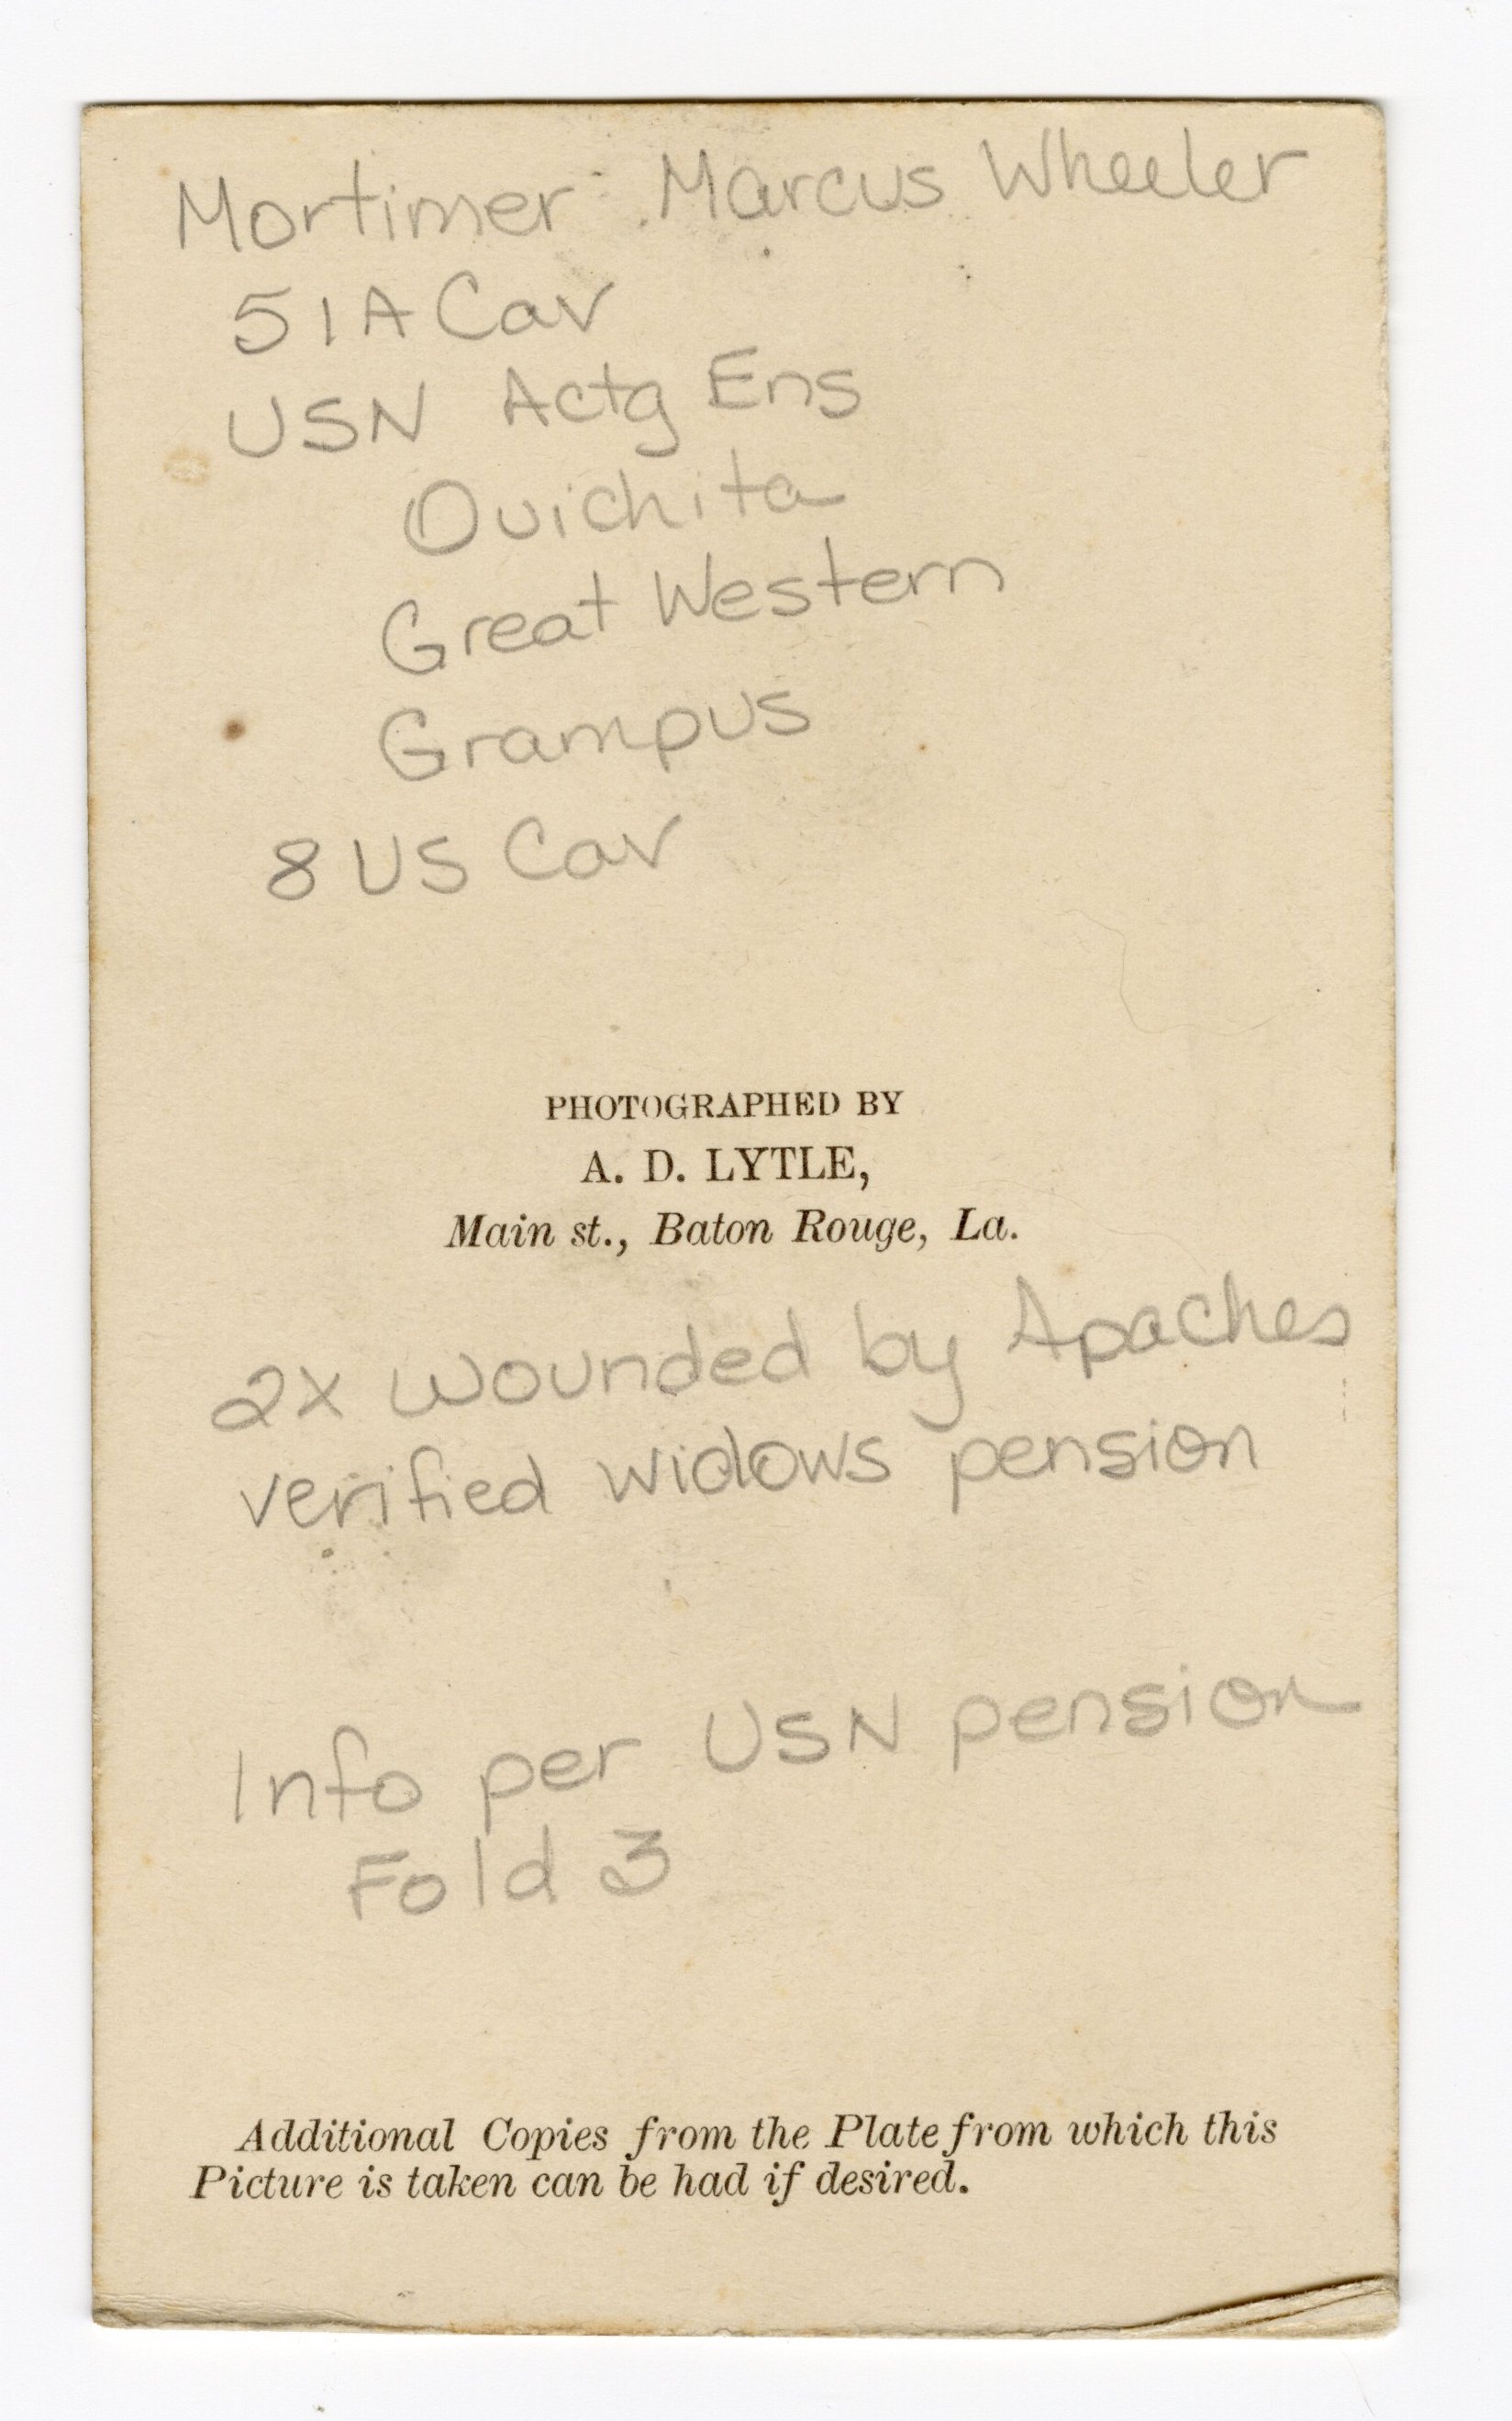 Mortimer Marcus Wheeler
5 IA Cav
USN Actg Ens
Ouichita
Great Western
Grampus
8 US Cav
PHOTOGRAPHED BY
A. D. LYTLE,
Main st., Baton Rouge, La.
2x wounded by Apaches
verified widows pension
Info per USN pension
Fold 3
Additional Copies from the Plate from which this
Picture is taken can be had if desired.